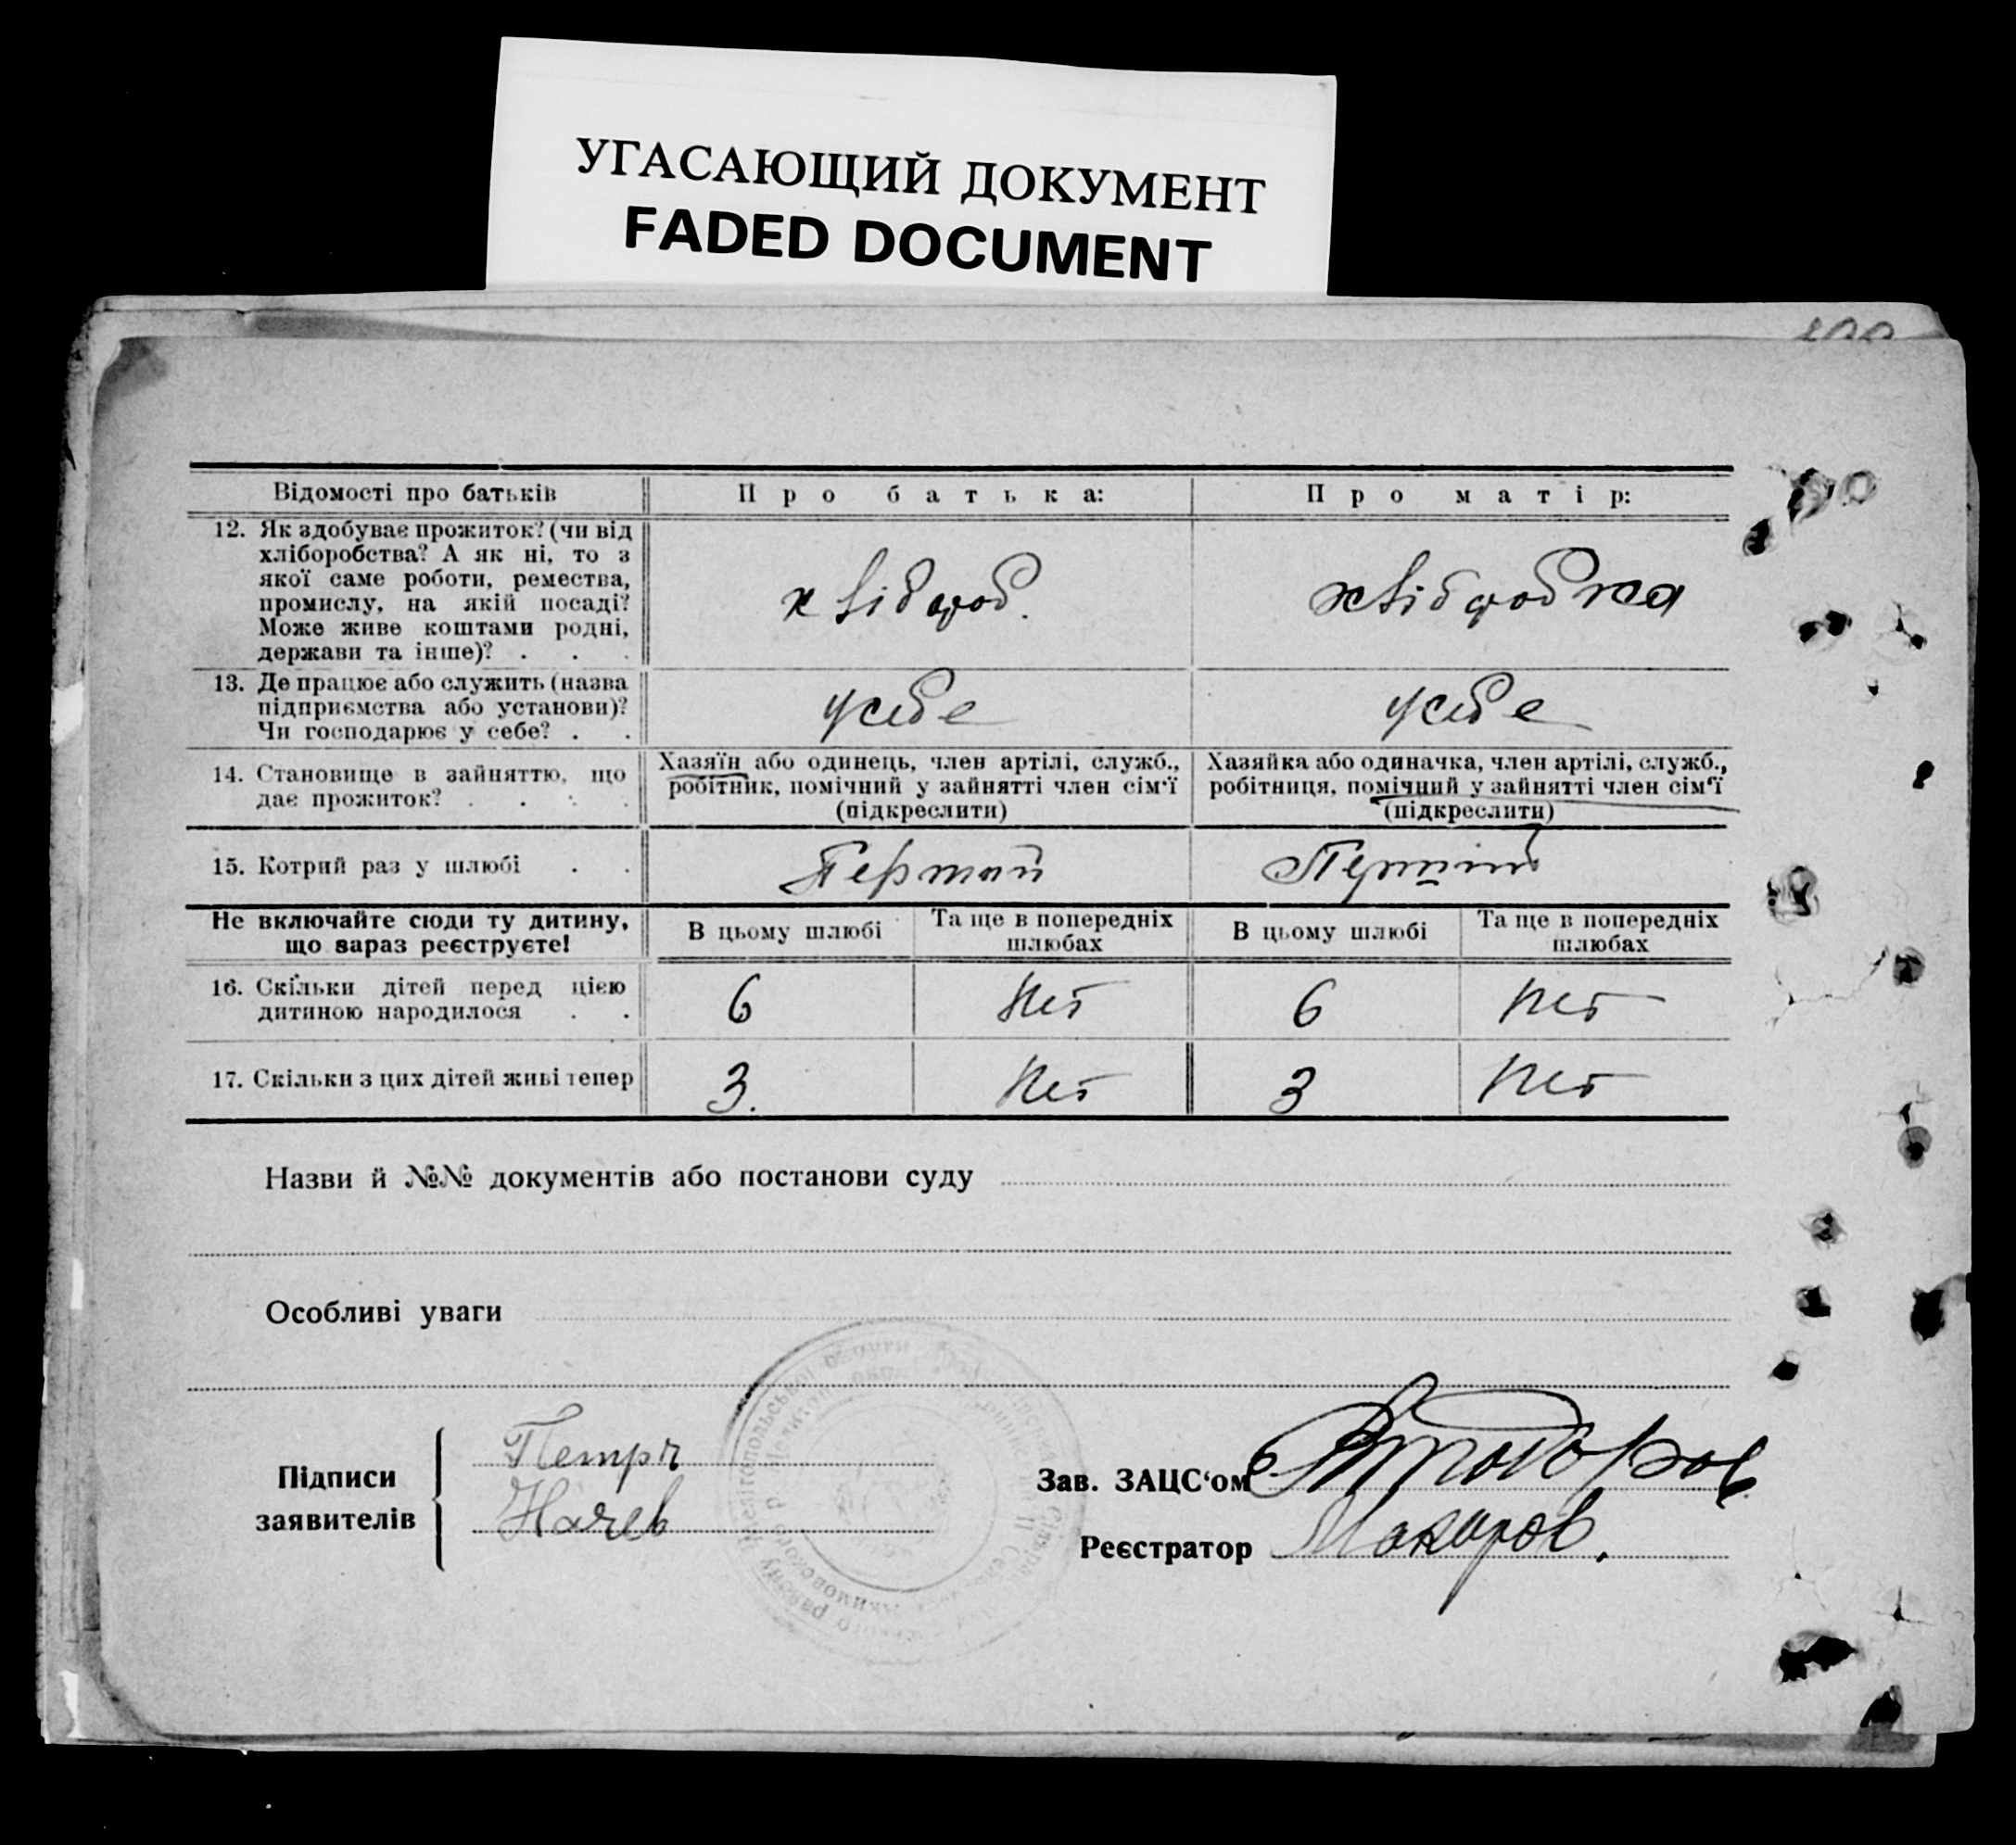 УГАСАЮЩИЙ ДОКУМЕНТ
FADED DOCUMENT
Відомості про батьків
Про батька:
Про матір:
12. Як здобуває прожиток? (чи від
хліборобства? А як ні, то з
якої саме роботи, ремества,
промислу, на якій посаді?
Може живе коштами родні,
держави та інше)? . . .
хлібороб.
хлібработка
13. Де працює або служить (назва
підприємства або установи)?
Чи господарює у себе? . .
у себе
у себе
14. Становище в зайняттю, що
дає прожиток? . . . .
Хазяїн або одинець, член артілі, служб.,
робітник, помічний у зайнятті член сім'ї
(підкреслити)
Хазяйка або одиначка, член артілі, служб.,
робітниця, помічний у зайнятті член сім'ї
(підкреслити)
15. Котрий раз у шлюбі . .
Першый
Перший
Не включайте сюди ту дитину,
що зараз реєструєте!
В цьому шлюбі
Та ще в попередніх
шлюбах
В цьому шлюбі
Та ще в попередніх
шлюбах
16. Скільки дітей перед цією
дитиною народилося . .
6
Нет
6
Нет
17. Скільки з цих дітей живі тепер
3.
Нет
3
Нет
Назви й №№ документів або постанови суду
Особливі уваги
Підписи
заявителів
Петръ
Начев
Зав. ЗАЦС'ом
Реєстратор
Макаров.